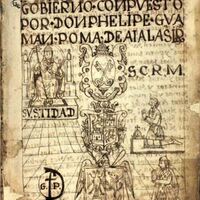 GOBIERNO·CONPVESTO
POR·DON PHELIPE·GVA
MAN·POMA·DE AIALA SIR
S·C·R·M·
SVSTIDAD
G· P·